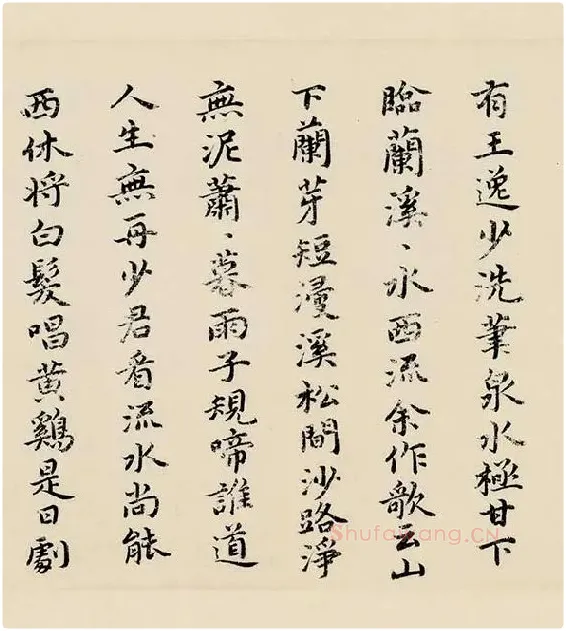 有王逸少洗筆泉水極甘下
臨蘭溪〻水西流余作歌云山
下蘭芽短浸溪松間沙路淨
無泥蕭〻暮雨子規啼誰道
人生無再少君看流水尚能
西休将白髮唱黄鷄是日劇
Shufawang.CN